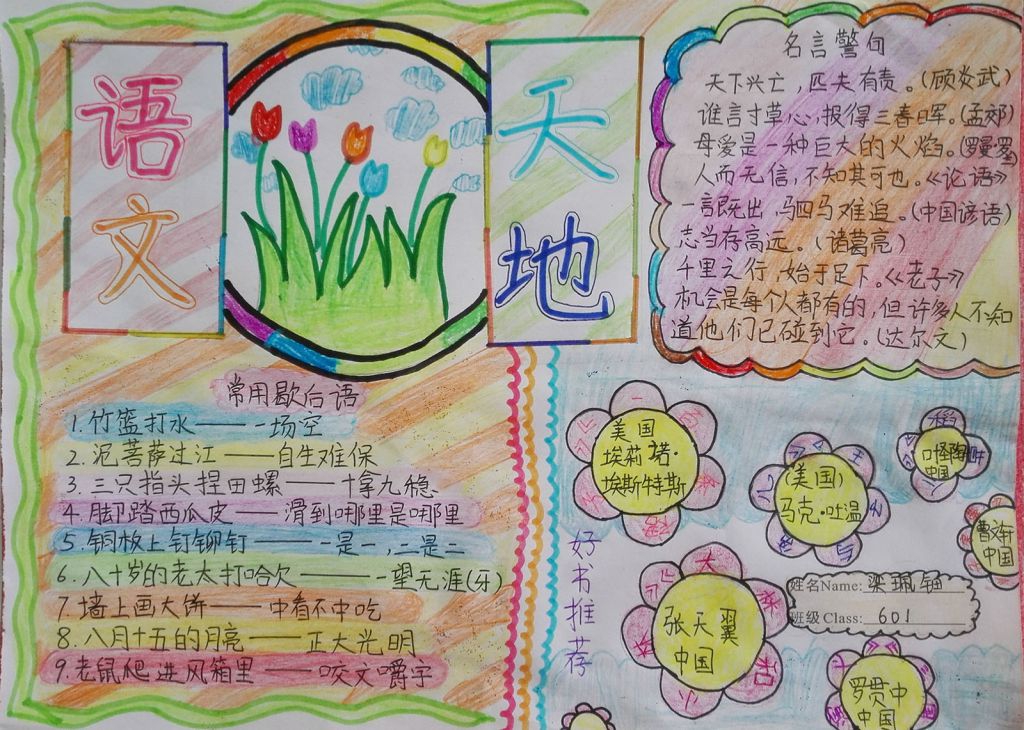 语文
天地
名言警句
天下兴亡，匹夫有责。(顾炎武)
谁言寸草心，报得三春晖。(孟郊)
母爱是一种巨大的火焰。(罗曼罗)
人而无信，不知其可也。《论语》
一言既出，驷马难追。(中国谚语)
志当存高远。(诸葛亮)
千里之行，始于足下。《老子》
机会是每个人都有的，但许多人不知
道他们已碰到它。(达尔文)
常用歇后语
1.竹篮打水——一场空
2.泥菩萨过江——自生难保
3.三只指头捏田螺——十拿九稳
4.脚踏西瓜皮——滑到哪里是哪里
5.铜板上钉铆钉——一是一，二是二
6.八十岁的老太打哈欠——一望无涯(牙)
7.墙上画大饼——中看不中吃
8.八月十五的月亮——正大光明
9.老鼠爬进风箱里——咬文嚼字
好书推荐
美国
埃莉诺·
埃斯特斯
(美国)
马克·吐温
叶圣陶
中国
曹文轩
中国
姓名Name:
班级 Class: 601
张天翼
中国
大林和小林
罗贯中
中国